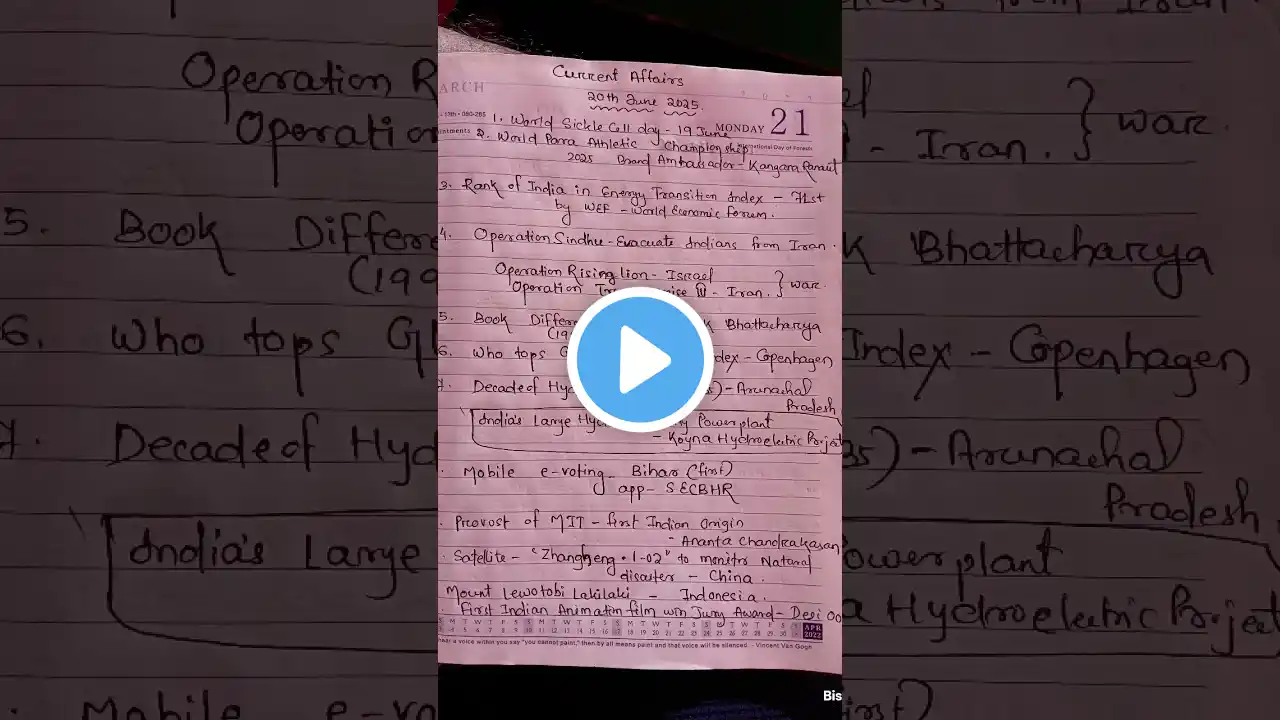 Current Affairs
ARCH
20th June 2025.
MONDAY 21
1. World Sickle Cell day - 19 June
2. World Para Athletic Championship
2025 Brand Ambassador - Kangana Ranaut
3. Rank of India in Energy Transition Index - 71st
by WEF - World Economic Forum.
4. Operation Sindhu - Evacuate Indians from Iran.
Operation Rising lion - Israel
Operation Iran. } war.
5. Book Bhattacharya
6. Who tops Copenhagen
7. Decade of Arunachal
Pradesh
India's Large Powerplant
- Koyna Hydroelectric Project
Mobile e-voting Bihar (first)
app - SECBHR
Provost of MIT - first Indian Origin
- Ananta Chandrakasan
Satellite - "Zhangheng 1-02" to monitor Natural
disaster - China.
Mount Lewotobi Lakilaki - Indonesia.
First Indian Animation film win Jury Award - Desi Oo
APR
2022
hear a voice within you say "you cannot paint," then by all means paint and that voice will be silenced. - Vincent Van Gogh
Bis